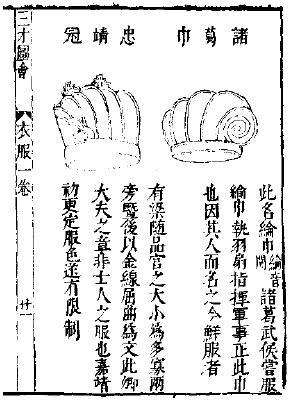 諸葛巾
此名綸巾綸音關諸葛武侯嘗服
綸巾執羽扇指揮軍事正此巾
也因其人而名之今鮮服者
忠靖冠
有梁隨品官之大小為多寡兩
旁暨後以金線屈曲為文此卿
大夫之章非士人之服也嘉靖
初更定服色遂有限制
三才圖會
衣服一卷